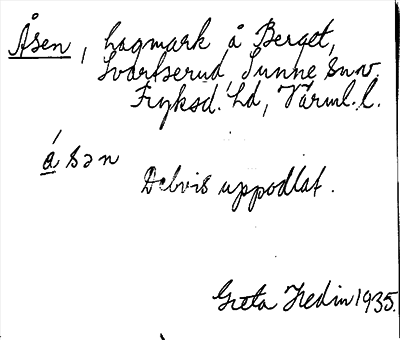 Åsen, hagmark å Berget,
Svartserud, Sunne snv.
Fryksd. hd, Värml. l.
ǻsən
Delvis uppodlat.
Greta Hedin 1935.